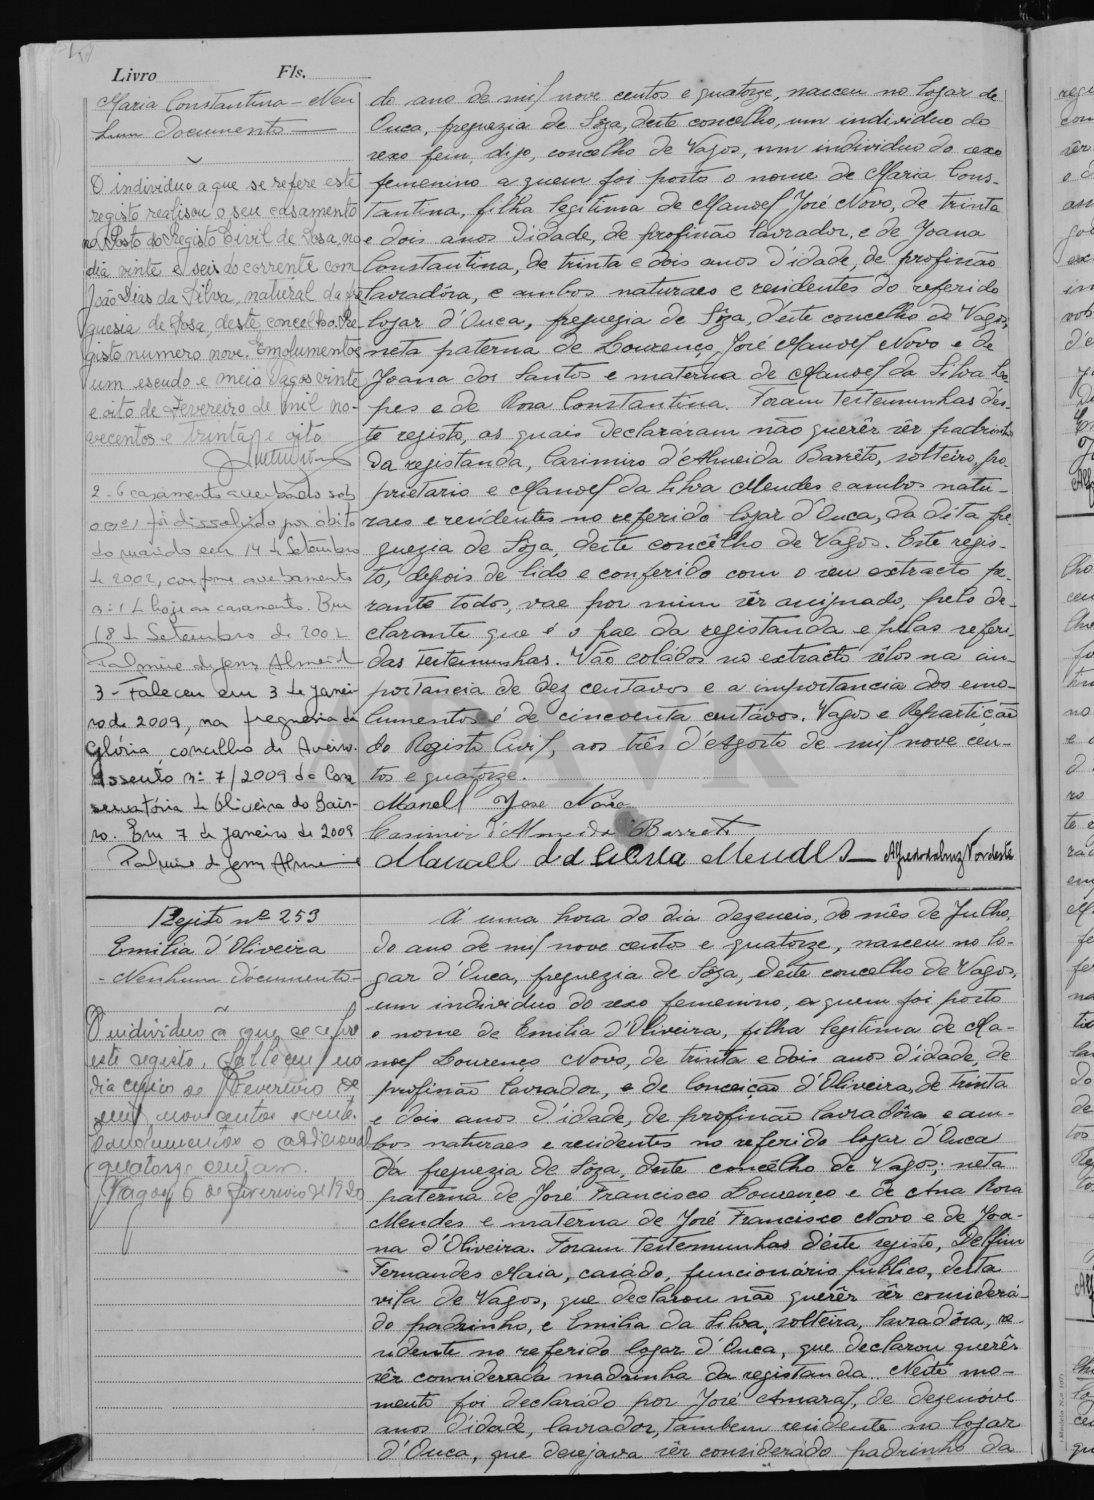 Livro Fls.
Maria Constantina - Nen
hum documento
O individuo a que se refere este
registo realisou o seu casamento
no Posto do Registo Civil de Sosa, no
dia vinte e seis do corrente com
João Dias da Silva, natural da fre
guesia de Sosa, deste concelho. Re
gisto numero nove. Emolumentos
um escudo e meio. Vagos vinte
e oito de Fevereiro de mil no-
vecentos e trinta e oito
2 - O casamento averbado sob
o nº 1 foi dissolvido por óbito
do marido em 14 de Setembro
de 2002, conforme averbamento
nº 1 de hoje ao casamento. Em
18 de Setembro de 2002
3 - Faleceu em 3 de janei-
ro de 2009, na freguesia da
Glória, concelho de Aveiro.
Assento nº 7/2009 da Con
servatória de Oliveira do Bair-
ro. Em 7 de janeiro de 2009
do ano de mil nove centos e quatorze, nasceu no logar de
Ouca, freguezia de Sôza, deste concelho, um individuo do
sexo fem, digo, concelho de Vagos, um individuo do sexo
femenino a quem foi posto o nome de Maria Cons-
tantina, filha legitima de Manoel José Novo, de trinta
e dois anos d'idade, de profissão lavrador, e de Joana
Constantina, de trinta e dois anos d'idade, de profissão
lavradôra, e ambos naturaes e residentes do referido
logar d'Ouca, freguezia de Sôza, d'este concelho de Vagos,
neta paterna de Lourenço José Manoel Novo e de
Joana dos Santos e materna de Manoel da Silva Lo
pes e de Rosa Constantina. Foram testemunhas des-
te registo, as quais declararam não querêr sêr padrinhos
da registanda, Casimiro d'Almeida Barrêto, solteiro, pro-
prietario e Manoel da Silva Mendes e ambos natu-
raes e residentes no referido logar d'Ouca, da dita fre
guezia de Sôza, deste concêlho de Vagos. Este regis-
to, depois de lido e conferido com o seu extracto pe-
rante todos, vae por mim sêr assignado, pelo de-
clarante que é o pae da registanda e pelas referi-
das testemunhas. Vão colados no extracto sêlos na im-
portancia de dez centavos e a importancia dos emo-
lumentos é de cincoenta centávos. Vagos e Repartição
do Registo Civil, aos três d'Agosto de mil nove cen-
tos e quatorze.
Manoel Jose Novo
Casimiro d'Almeida Barreto
Manoel da Silva Mendes
Registo nº 253
Emilia d'Oliveira
- Nenhum documento -
O individuo a que se refere
este registo, falleceu no
dia cinco de Fevereiro de
mil nove centos e vinte.
Emolumentos e addicional
quatorze centavos.
Vagos, 6 de fevereiro de 1920
Á uma hora do dia dezeseis, do mês de Julho,
do ano de mil nove centos e quatorze, nasceu no lo-
gar d'Ouca, freguezia de Sôza, deste concelho de Vagos,
um individuo do sexo femenino, a quem foi posto
o nome de Emilia d'Oliveira, filha legitima de Ma-
noel Lourenço Novo, de trinta e dois anos d'idade, de
profissão lavrador, e de Conceição d'Oliveira, de trinta
e dois anos d'idade, de profissão lavradôra e am-
bos naturaes e residentes no referido logar d'Ouca
da freguezia de Sôza, deste concêlho de Vagos; neta
paterna de José Francisco Lourenço e de Ana Rosa
Mendes e materna de José Francisco Novo e de Joa-
na d'Oliveira. Foram testemunhas d'este registo, Delfim
Fernandes Maia, casádo, funcionário publico, desta
vila de Vagos, que declarou não querêr sêr considerá-
do padrinho, e Emilia da Silva, solteira, lavradôra, re-
sidente no referido logar d'Ouca, que declarou querêr
sêr considerada madrinha da registanda. Neste mo-
mento foi declarado por José Amaral, de dezenóve
anos d'idade, lavrador, tambem residente no logar
d'Ouca, que desejava sêr considerádo padrinho da